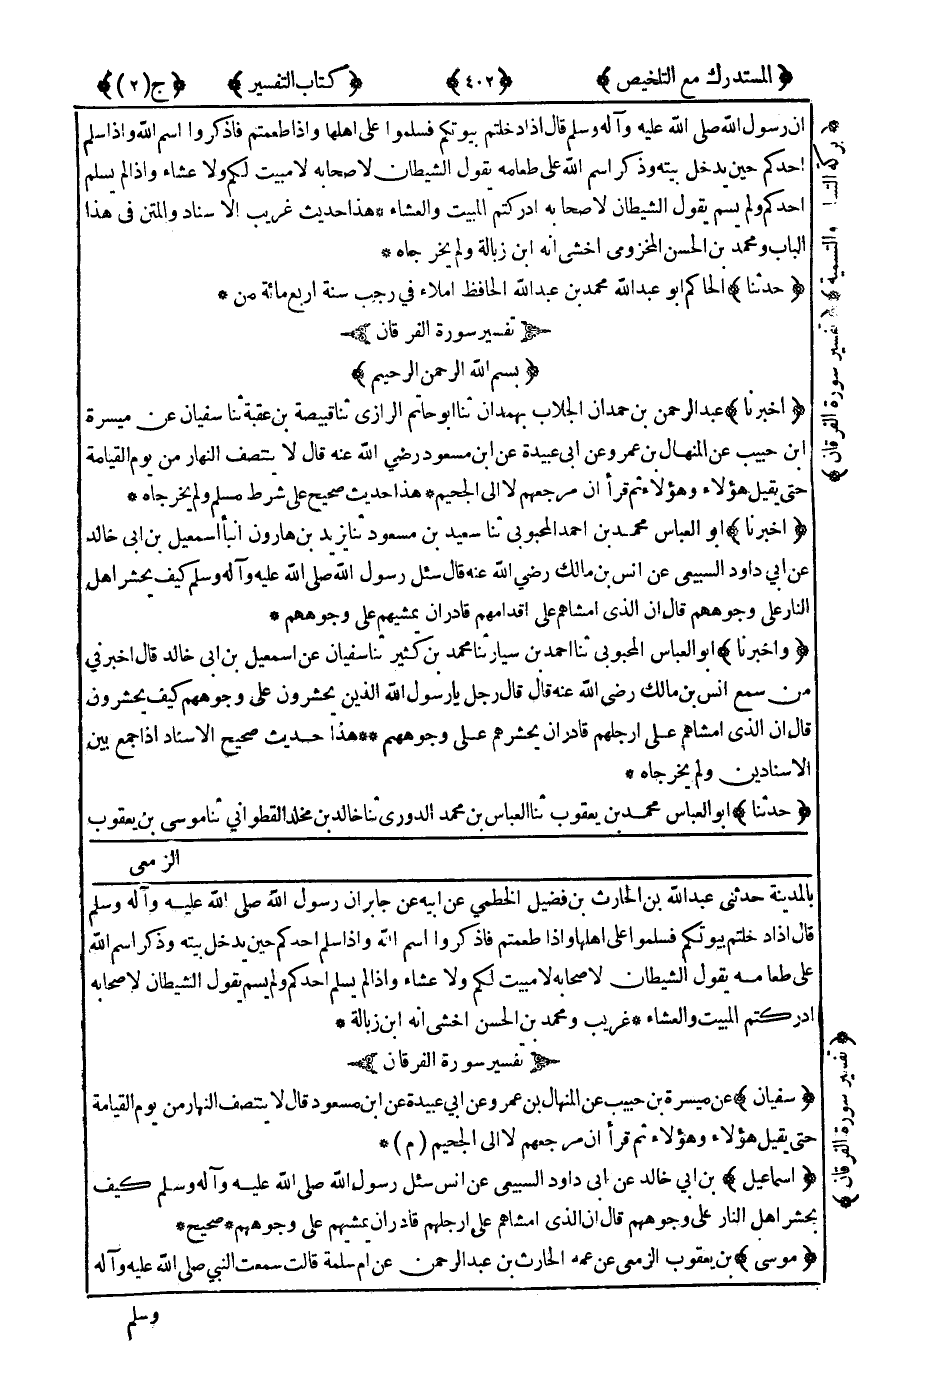 ﴿ المستدرك مع التلخيص ﴾ ﴿ ٤٠٢ ﴾ ﴿ كتاب التفسير ﴾ ﴿ ج (٢) ﴾
ان رسول الله صلى الله عليه وآله وسلم قال اذا دخلتم بيوتكم فسلموا على اهلها واذا طعمتم فاذكروا اسم الله واذا سلم
احدكم حين يدخل بيته وذكر اسم الله على طعامه يقول الشيطان لاصحابه لا مبيت لكم ولا عشاء واذا لم يسلم
احدكم ولم يسم يقول الشيطان لاصحابه ادركتم المبيت والعشاء * هذا حديث غريب الاسناد والمتن فى هذا
الباب ومحمد بن الحسن المخزومى اخشى انه ابن زبالة ولم يخرجاه *
﴿ حدثنا ﴾ الحاكم ابو عبد الله محمد بن عبد الله الحافظ املاء في رجب سنة اربع مائة من *
تفسير سورة الفرقان
﴿ بسم الله الرحمن الرحيم ﴾
﴿ اخبرنا ﴾ عبد الرحمن بن حمدان الجلاب بهمدان ثنا ابو حاتم الرازى ثنا قبيصة بن عقبة ثنا سفيان عن ميسرة
ابن حبيب عن المنهال بن عمرو عن ابى عبيدة عن ابن مسعود رضي الله عنه قال لا ينتصف النهار من يوم القيامة
حتى يقيل هؤلاء وهؤلاء ثم قرأ ان مرجعهم لالى الجحيم * هذا حديث صحيح على شرط مسلم ولم يخرجاه *
﴿ اخبرنا ﴾ ابو العباس محمد بن احمد المحبوبى ثنا سعيد بن مسعود ثنا يزيد بن هارون انبأ اسمعيل بن ابى خالد
عن ابي داود السبيعى عن انس بن مالك رضي الله عنه قال سئل رسول الله صلى الله عليه وآله وسلم كيف يحشر اهل
النار على وجوههم قال ان الذى امشاهم على اقدامهم قادر ان يمشيهم على وجوههم *
﴿ واخبرنا ﴾ ابو العباس المحبوبى ثنا احمد بن سيار ثنا محمد بن كثير ثنا سفيان عن اسمعيل بن ابى خالد قال اخبرني
من سمع انس بن مالك رضى الله عنه قال قال رجل يا رسول الله الذين يحشرون على وجوههم كيف يحشرون
قال ان الذى امشاهم على ارجلهم قادر ان يحشرهم على وجوههم ** هذا حديث صحيح الاسناد اذا جمع بين
الاسنادين ولم يخرجاه *
﴿ حدثنا ﴾ ابو العباس محمد بن يعقوب ثنا العباس بن محمد الدورى ثنا خالد بن مخلد القطواني ثنا موسى بن يعقوب
الزمعى
بالمدينة حدثنى عبد الله بن الحارث بن فضيل الخطمي عن ابيه عن جابر ان رسول الله صلى الله عليه وآله وسلم
قال اذا دخلتم بيوتكم فسلموا على اهلها واذا طعمتم فاذكروا اسم الله واذا سلم احدكم حين يدخل بيته وذكر اسم الله
على طعامه يقول الشيطان لاصحابه لا مبيت لكم ولا عشاء واذا لم يسلم احدكم ولم يسم يقول الشيطان لاصحابه
ادركتم المبيت والعشاء * غريب ومحمد بن الحسن اخشى انه ابن زبالة *
تفسير سورة الفرقان
﴿ سفيان ﴾ عن ميسرة بن حبيب عن المنهال بن عمرو عن ابي عبيدة عن ابن مسعود قال لا ينتصف النهار من يوم القيامة
حتى يقيل هؤلاء وهؤلاء ثم قرأ ان مرجعهم لالى الجحيم ( م ) *
﴿ اسماعيل ﴾ بن ابي خالد عن ابى داود السبيعى عن انس سئل رسول الله صلى الله عليه وآله وسلم كيف
يحشر اهل النار على وجوههم قال ان الذى امشاهم على ارجلهم قادر ان يمشيهم على وجوههم * صحيح *
﴿ موسى ﴾ بن يعقوب الزمعى عن عمه الحارث بن عبد الرحمن عن ام سلمة قالت سمعت النبي صلى الله عليه وآله
وسلم
والتسمية
﴿ تفسير سورة الفرقان ﴾
﴿ تفسير سورة الفرقان ﴾